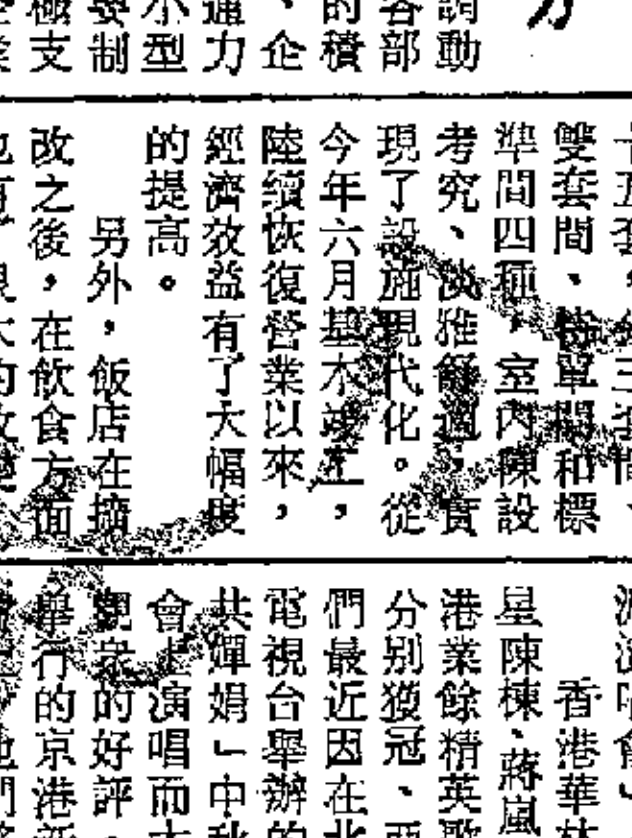 調動
容部
的積
、企
通力
小型
要制
極支
十五套，
雙套間、
單間和標
準間四種，室內陳設
考究、淡雅舒適，實
現了設施現代化。從
今年六月基本竣工，
陸續恢復營業以來，
經濟效益有了大幅度
的提高。
另外，飯店在擴
改之後，在飲食方面
也有了很大的改變
香港華
星陳棟、蔣嵐
港業餘精英歌
分别獲冠、亞
們最近因在北
電視台舉辦的
共嬋娟」中秋
會上演唱而
觀衆的好評。
舉行的京港新